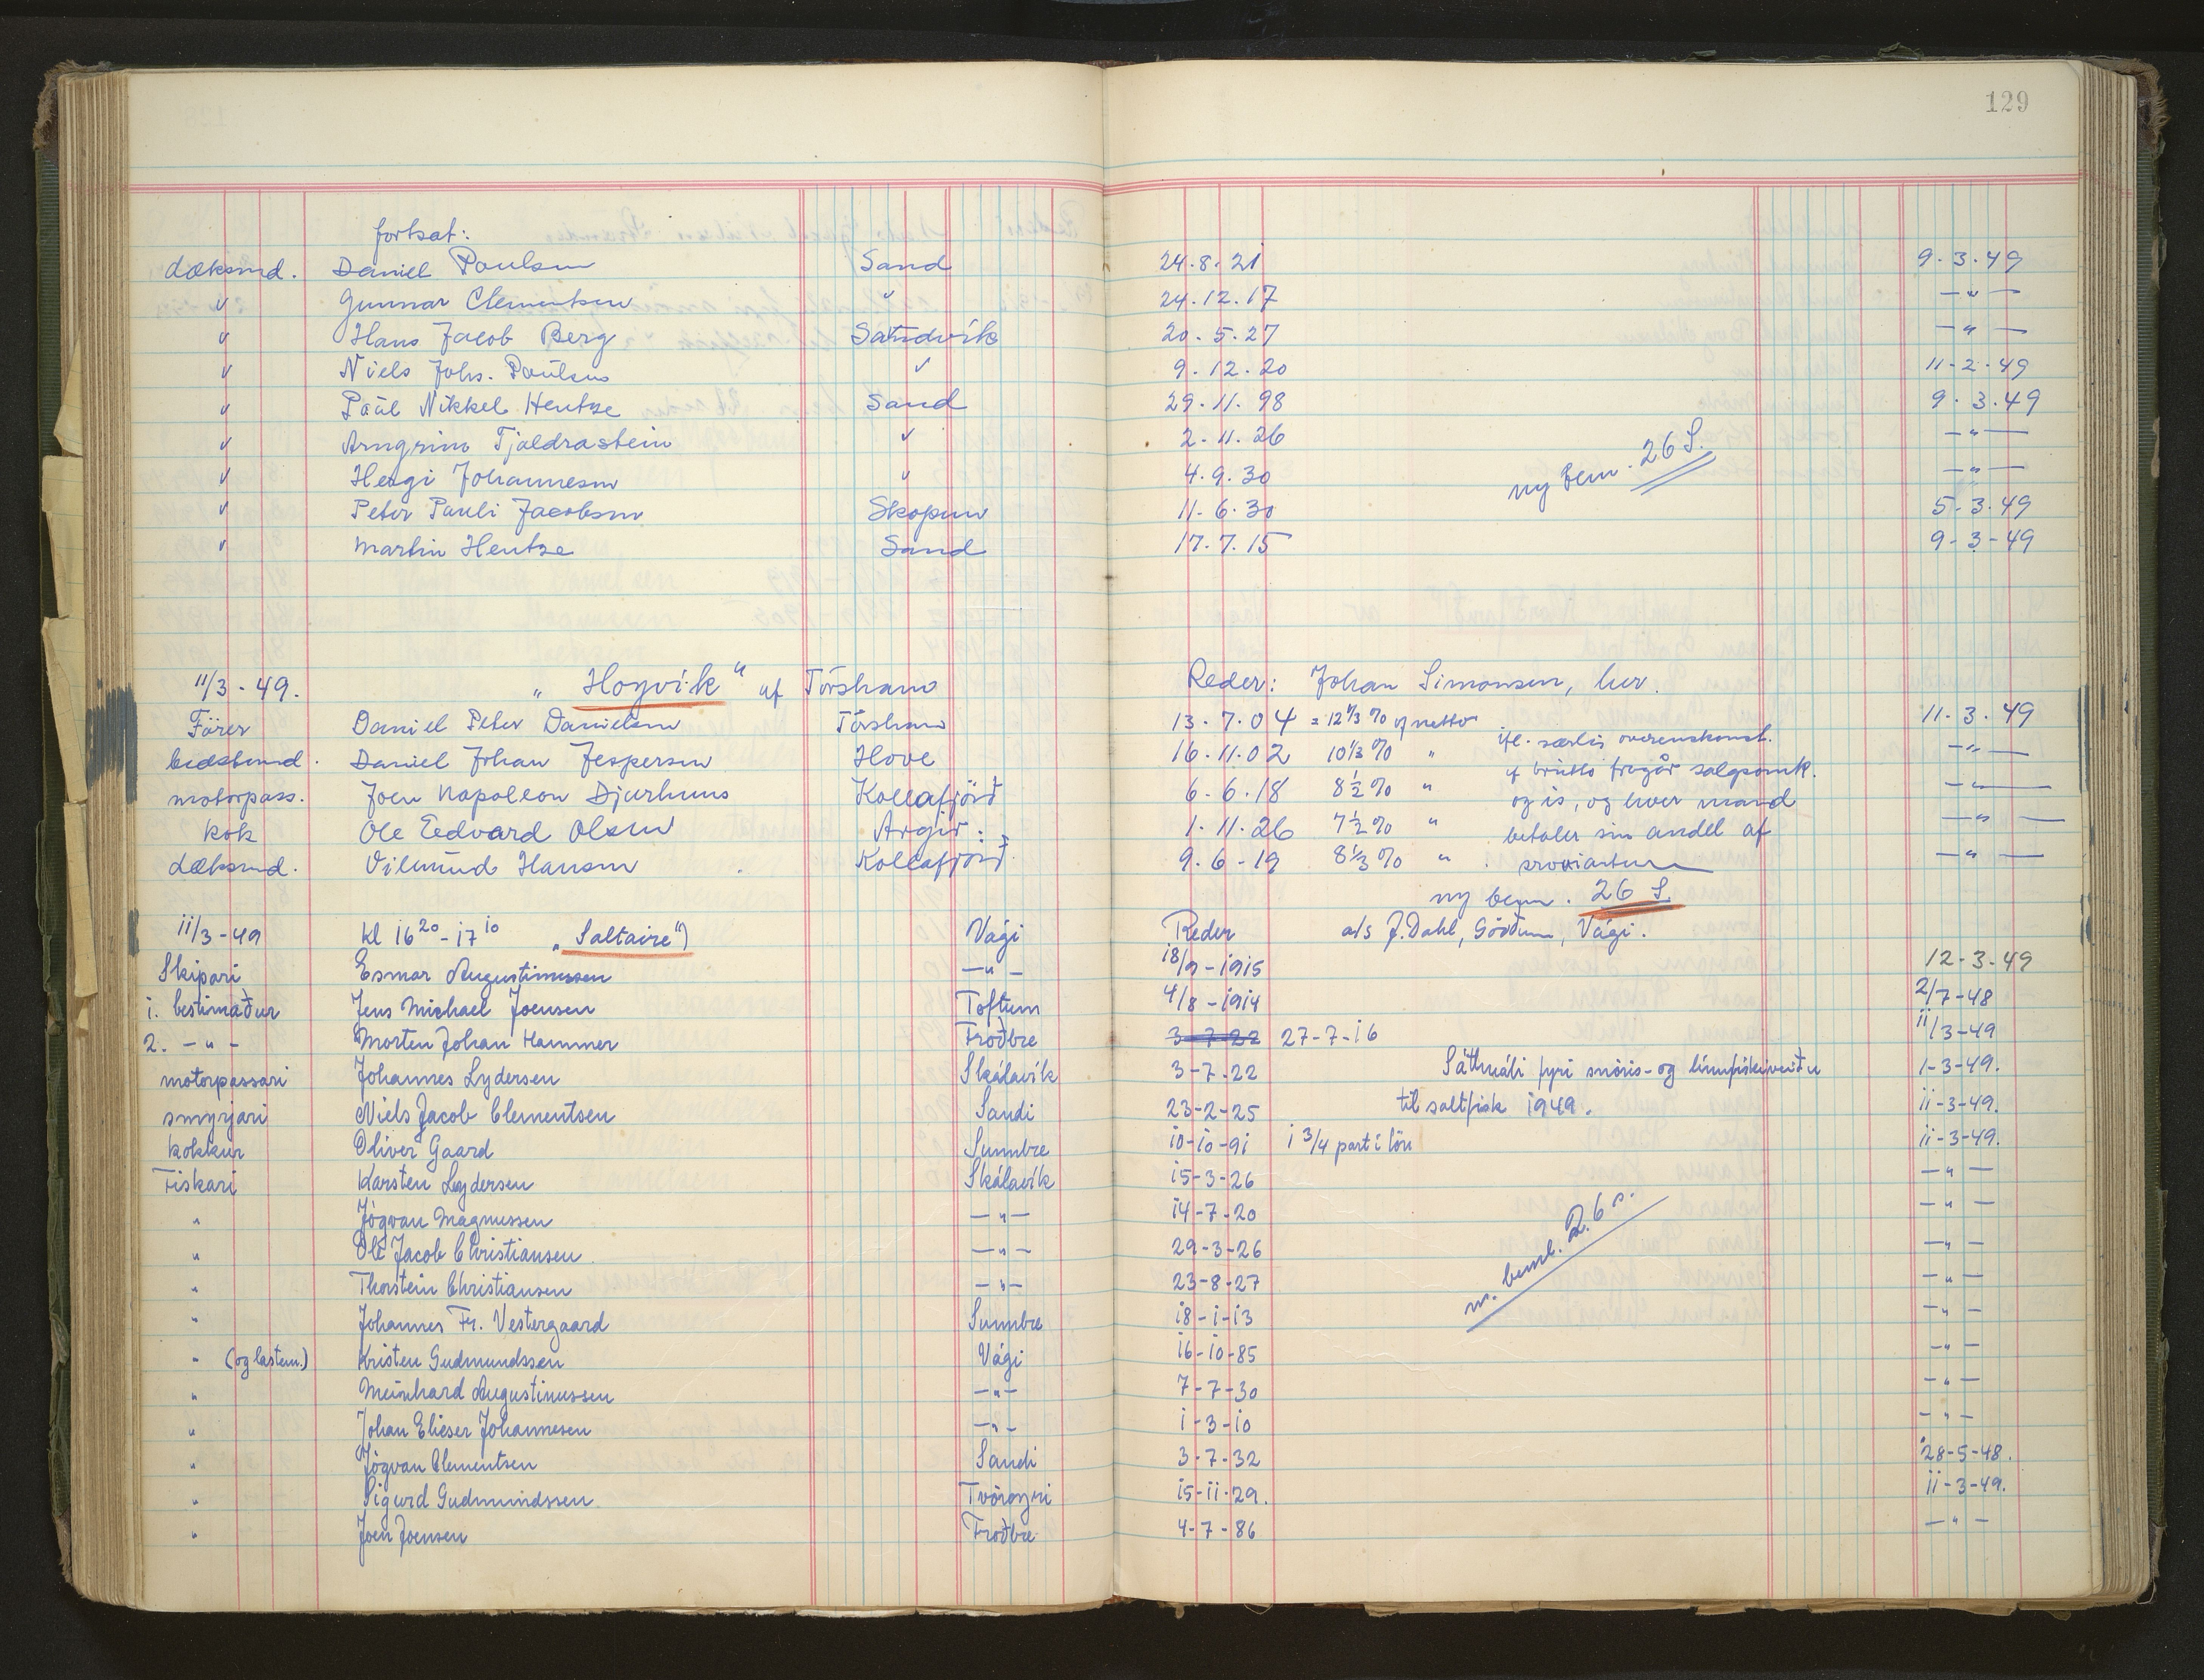 129
fortsat:
dæksmd. Daniel Poulsen Sand 24.8.21 9.3.49
" Gunnar Clementsen " 24.12.17 — " —
" Hans Jacob Berg Sandvík 20.5.27 — " —
" Niels Johs. Poulsen " 9.12.20 11-2-49
" Páll Nikkel Hentze Sand 29.11.98 9.3.49
" Arngrim Tjaldrastein " 2-11.26 — " —
" Helgi Johannesen " 4.9.30 — " —
ny bem. 26 S.
" Peter Pauli Jacobsen Skopun 11-6.30 5-3-49
" Martin Hentze Sand 17.7.15 9-3-49
11/3-49. „Hoyvík“ af Tórshavn Reder: Johan Simonsen, her.
Förer Daniel Peter Danielsen Tórshavn 13.7.04 = 12 1/3 % af netto 11.3.49
ifl. særlis overenskomst.
bedstemd. Daniel Johan Jespersen Hove 16.11.02 10 1/3 % " — " —
af brutto fragår salgsomk.
motorpass. Joen Napoleon Djurhuus Kollafjörð 6-6.18 8 1/2 % " — " —
og is, og hver mand
kok Ole Edvard Olsen Argir 1.11.26 7 1/2 % " — " —
betaler sin andel af
dæksmd. Vilmund Hansen Kollafjörð 9.6-19 8 1/3 % " — " —
provianten
ny bem. 26 S.
11/3-49 kl 16 20 - 17 10 „Saltaire“) Vági Reder a/s J. Dahl, Göðum, Vági.
Skipari Esmar Augustinussen — " — 18/9-1915 12-3-49
1. bestimaður Jens Michael Joensen Toftum 4/8-1914 2/7-48
2. — " — Morten Johan Hammer Froðbre 3-7-22 27-7-16 11/3-49
motorpassari Johannes Lydersen Skálavík 3-7-22 Sáttmáli fyri snöris- og línufiskiveiðu 1-3-49.
smyrjari Niels Jacob Clementsen Sandi 23-2-25 til saltfisk 1949. 11-3-49.
kokkur Oliver Gaard Sumbre 10-10-91 1 3/4 part i lön 11-3-49.
Fiskari Karsten Lydersen Skálavík 15-3-26 — " —
" Jógvan Magnussen — " — 14-7-20 — " —
" Ole Jacob Christiansen — " — 29-3-26 — " —
" Thorstein Christiansen — " — 23-8-27 — " —
" Johannes Fr. Vestergaard Sumbre 18-1-13 — " —
" (og lastem.) Kristen Gudmundssen Vági 16-10-85 — " —
" Meinhard Augustinussen — " — 7-7-30 — " —
" Johan Elieser Johannesen — " — 1-3-10 — " —
" Jógvan Clementsen Sandi 3-7-32 28-5-48.
" Sigurd Gudmundssen Tvöroyri 15-11-29. 11-3-49.
" Joen Joensen Froðbre 4-7-86 — " —